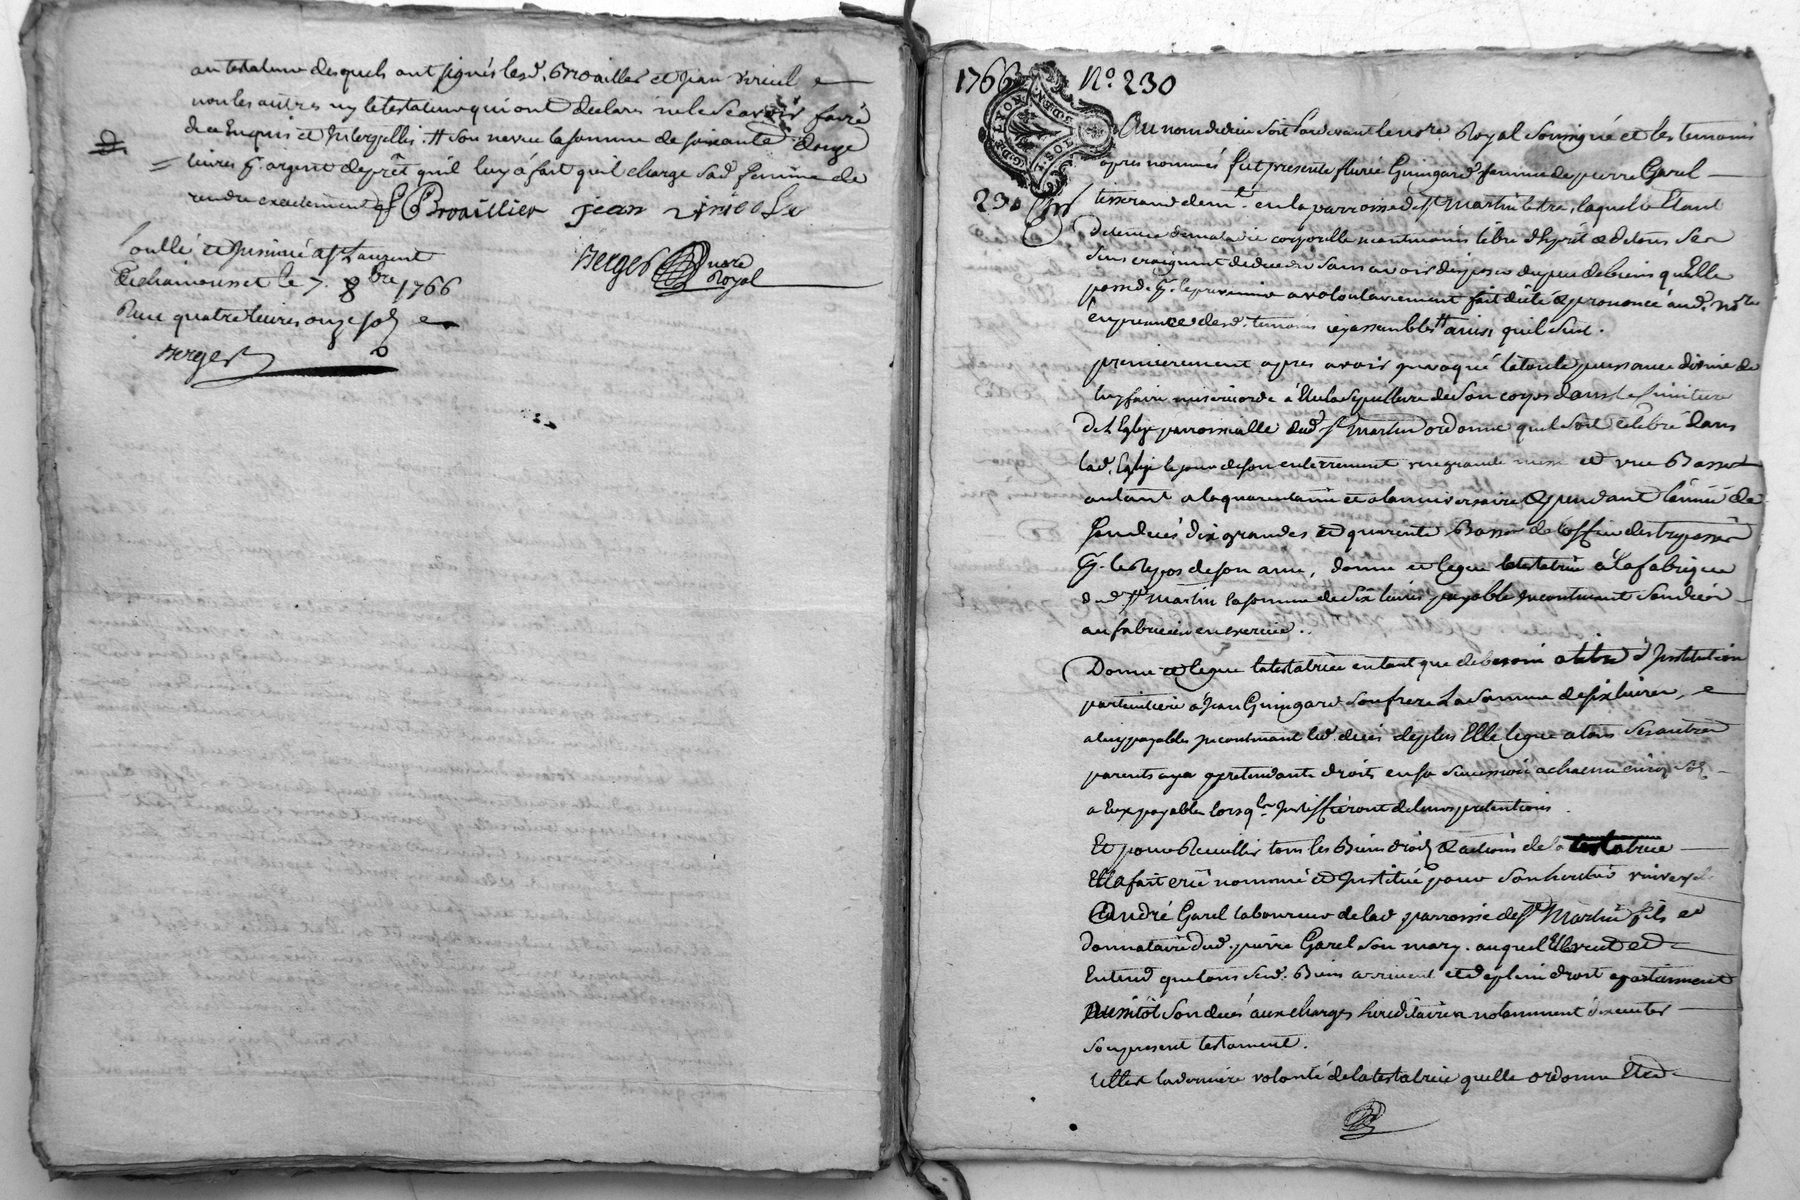 au testateur desquels ont signés lesd. Broaillier et Jean
non les autres ny le testateur qui ont declaré ne le scavoir faire
de ce Enquis et Interpellés. # Son neveu la somme de soixante douze
livres p. argent de prêt qu'il luy á fait qu'il charge sad. femme de
rendre exactement Broaillier jean
Berger nore Royal
Controllé et Insinué a St Laurent
de chamousset le 7. 8bre 1766
Reçu quatre livres onze sols
Berger
1766 No. 230
G. DE LYON
1. SOL
Au nom de dieu soit Pardevant le nore Royal soussigné et les temoins
apres nommés fut presente fleurie Guingard femme de pierre Garel
230 tisserand demt. en la parroisse de St Martin laquelle Etant
detenue de maladie corporelle neantmoins libre d'Esprit & de tous ses
sens craignant de deceder sans avoir disposé du peu de biens qu'Elle
possede p. le presenter a volontairement fait dicté & prononcé aud. nore
En presence desd. temoins icy assemblés ainsi quil suit.
premierement apres avoir invoqué la toute puissance divine de
luy faire misericorde á Elu la sepulture de son corps dans le cimitiere
de L'Eglise parroissialle dud. St Martin ordonne quil soit célébré dans
lad. Eglise le jour de son enterrement une grande messe et une Basse
autant a la quarantaine et a l'anniversaire & pendant l'année de
son decés dix grandes et quarante Basses de l'office des trepassés
p. le Repos de son ame, donne et legue la testatrice á la fabrique
dud. St Martin la somme de six livres payable Incontinant son decés
au fabricien en exercice.
Donne et legue la testatrice en tant que de besoin a titre d'Institution
particuliere á Jean Guingard son frere La somme de six livres
a luy payables Incontinant led. decés de plus Elle legue a tous ses autres
parents aya pretendants droits en sa succession a chacun cinq sols
a Eux payables lorsq. Justiffieront de leurs pretentions.
Et pour Recueillir tous les Biens droits & actions de la testatrice
Ella fait créé nommé et Institué pour son heritier universel
André Garel laboureur de lad. parroisse de St Martin fils et
donnataire dud. pierre Garel son mary. auquel Elle veut et
Entend que tous sesd. Biens arrivent et de plein droit apartiennent
aussitôt son decés aux charges hereditaires notamment d'executer
son present testament.
telle est la derniere volonté de la testatrice quelle ordonne Etre